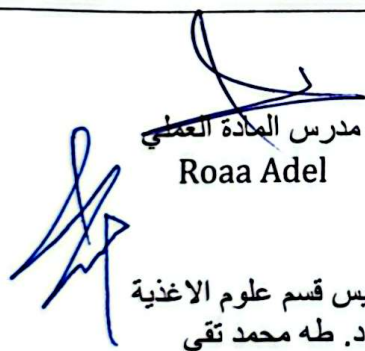 مدرس المادة العملي
Roaa Adel
يس قسم علوم الاغذية
د. طه محمد تقي